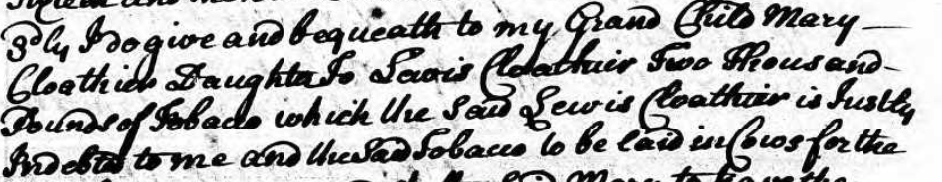 3dly I do give and bequeath to my Grand Child Mary
Cloathier Daughter to Lewis Cloathier Two Thousand
Pounds of Tobacco which the Said Lewis Cloathier is Justly
Indebted to me and the Said Tobacco to be laid in Cows for the
Mary to have the